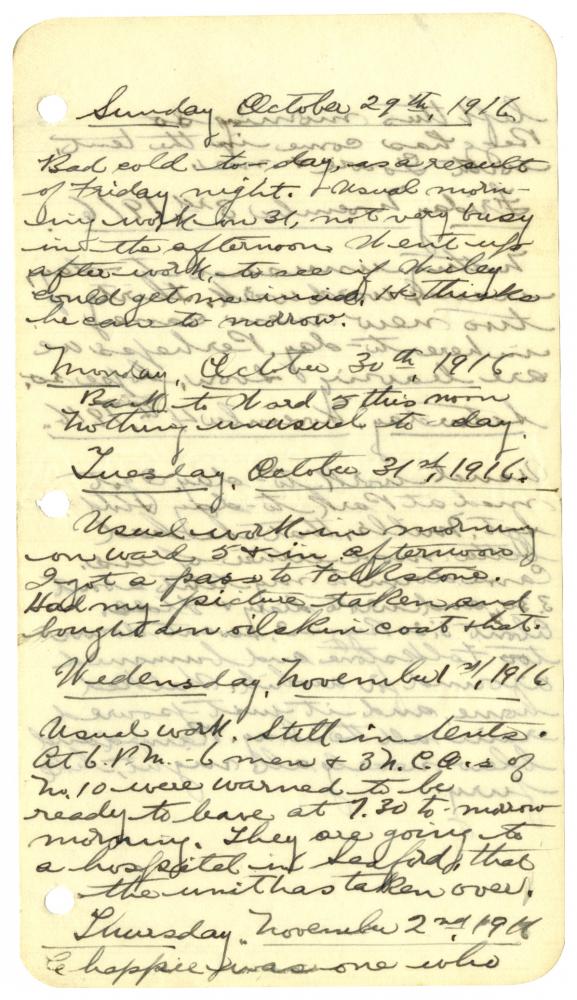 Sunday October 29th, 1916.
Bad cold to-day, as a result
of Friday night. Usual morn-
ing work on 31, not very busy
in the afternoon. Went up
after work, to see if Wiley
could get me inside. He thinks
he can to-morrow.
Monday, October 30th, 1916
Back to Ward 5 this noon
Nothing unusual to-day.
Tuesday, October 31st, 1916.
Usual work in morning
on ward 5 & in afternoon
I got a pass to Folkstone.
Had my picture taken and
bought an oilskin coat & hat.
Wedensday, November 1st, 1916
Usual work. Still in tents.
At 6. P.M. - 6 men & 3 N.C.O.s of
No. 10 were warned to be
ready to leave at 7.30 to-morrow
morning. They are going to
a hospital in Seaford, that
the unit has taken over.
Thursday, November 2nd, 1916
Chappie was one who